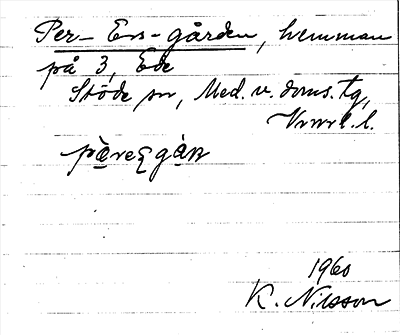 Per-Ers-gården, hemman
på 3, Ede
Stöde sn, Med. v. doms. tg,
Vnrl. l.
1960
K. Nilsson